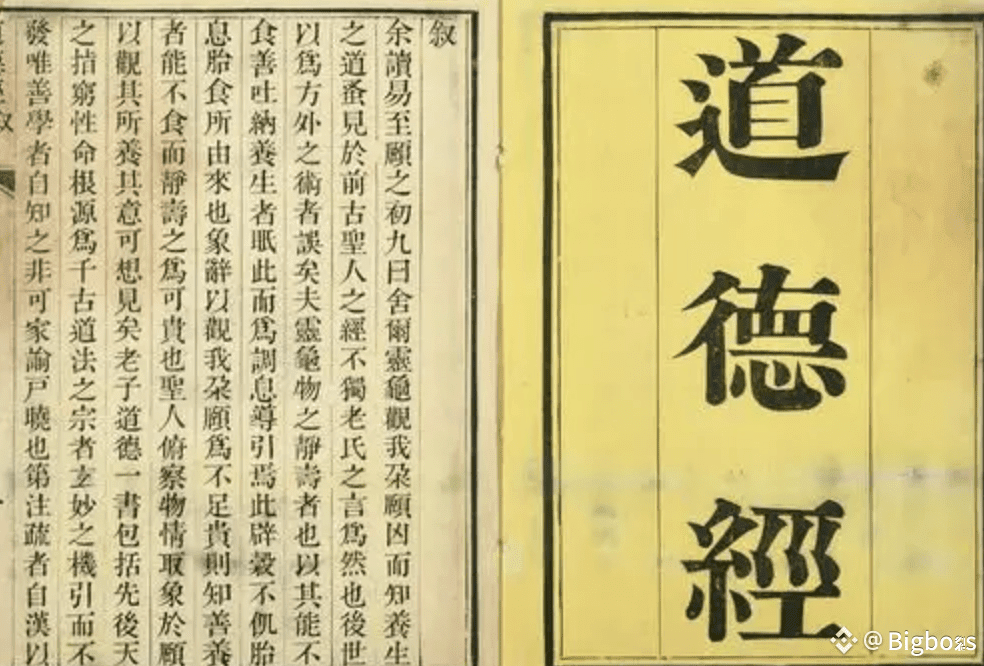 道德經
叙
余讀易至頤之初九曰舍爾靈龜觀我朶頤凶而知養生
之道蚤見於前古聖人之經不獨老氏之言爲然也後世
以爲方外之術者誤矣夫靈龜物之靜壽者也以其能不
食善吐納養生者眂此而爲調息導引焉此辟穀不飢胎
息胎食所由來也象辭以觀我朶頤爲不足貴則知善養
者能不食而靜壽之爲可貴也聖人俯察物情取象於頤
以觀其所養其意可想見矣老子道德一書包括先後天
之窮性命根源爲千古道法之宗者玄妙之機引而不
發唯善學者自知之非可家諭戸曉也第注疏者自漢以
@Bigboss